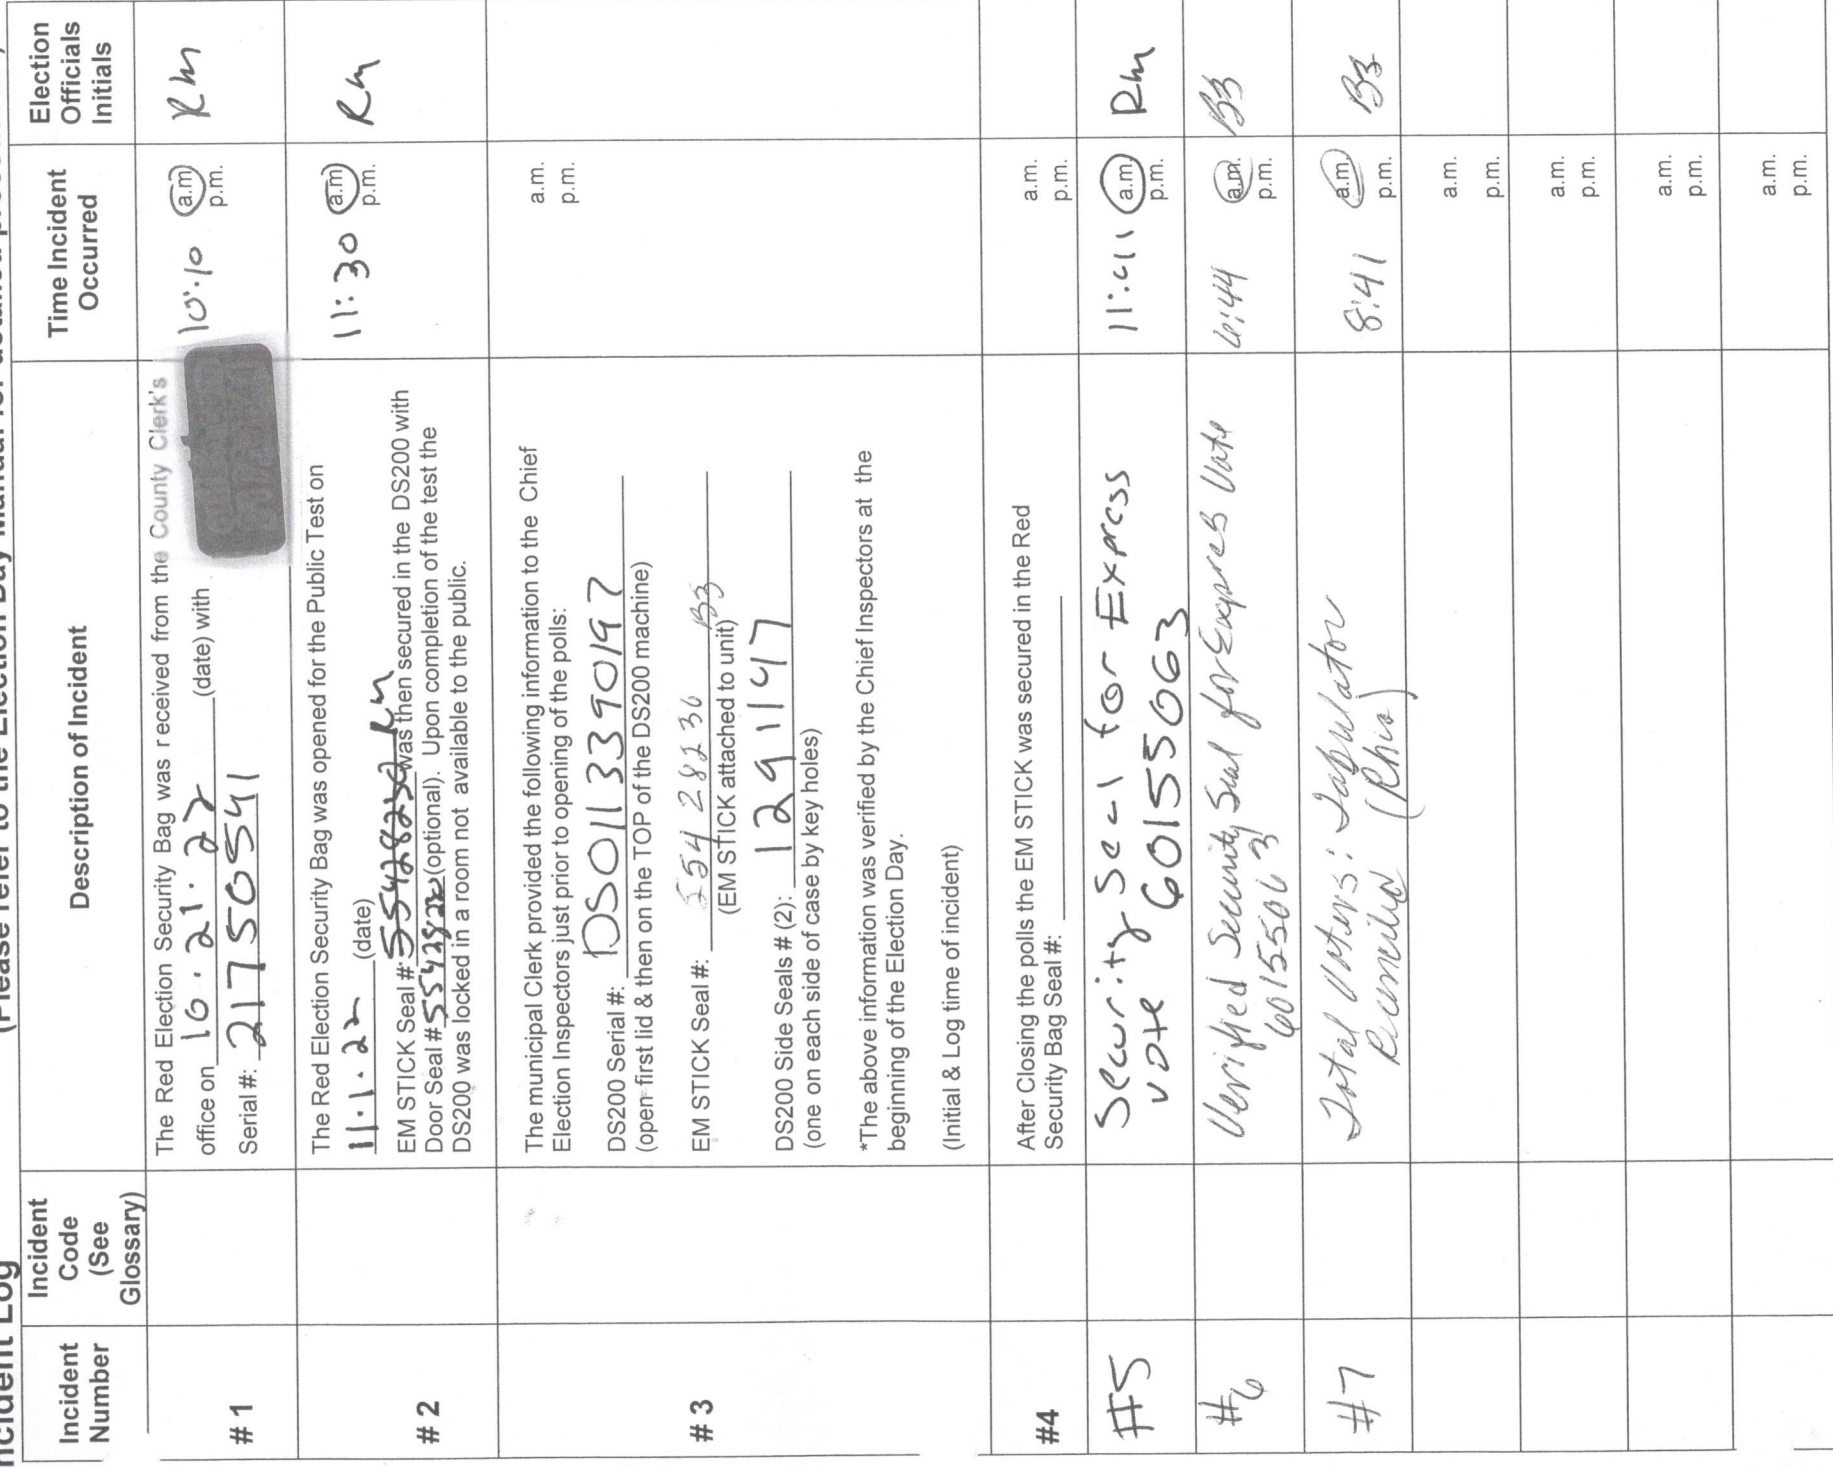 ncident Log
(Please refer to the Election Day Manual for detailed
Incident
Number
Incident
Code
(See
Glossary)
Description of Incident
Time Incident
Occurred
Election
Officials
Initials
# 1
The Red Election Security Bag was received from the County Clerk's
office on 10.21.22 (date) with
Serial #: 21750541
10:10 a.m.
p.m.
Rm
# 2
The Red Election Security Bag was opened for the Public Test on
11.1.22 (date)
EM STICK Seal #: was then secured in the DS200 with
Door Seal # (optional). Upon completion of the test the
DS200 was locked in a room not available to the public.
Rm
11:30 a.m.
p.m.
Rm
# 3
The municipal Clerk provided the following information to the Chief
Election Inspectors just prior to opening of the polls:
DS200 Serial #: DS0113390197
(open first lid & then on the TOP of the DS200 machine)
EM STICK Seal #: 5542 8236 B3
(EM STICK attached to unit)
DS200 Side Seals # (2): 1291147
(one on each side of case by key holes)
*The above information was verified by the Chief Inspectors at the
beginning of the Election Day.
(Initial & Log time of incident)
a.m.
p.m.
#4
After Closing the polls the EM STICK was secured in the Red
Security Bag Seal #:
a.m.
p.m.
#5
Security Seal for Express
vote 60155063
11:41 a.m.
p.m.
Rm
#6
Verified Security Seal for Express Vote
60155063
6:44 a.m.
p.m.
B3
#7
Total Voters: Tabulator
8:41 a.m.
p.m.
B3
a.m.
p.m.
a.m.
p.m.
a.m.
p.m.
a.m.
p.m.